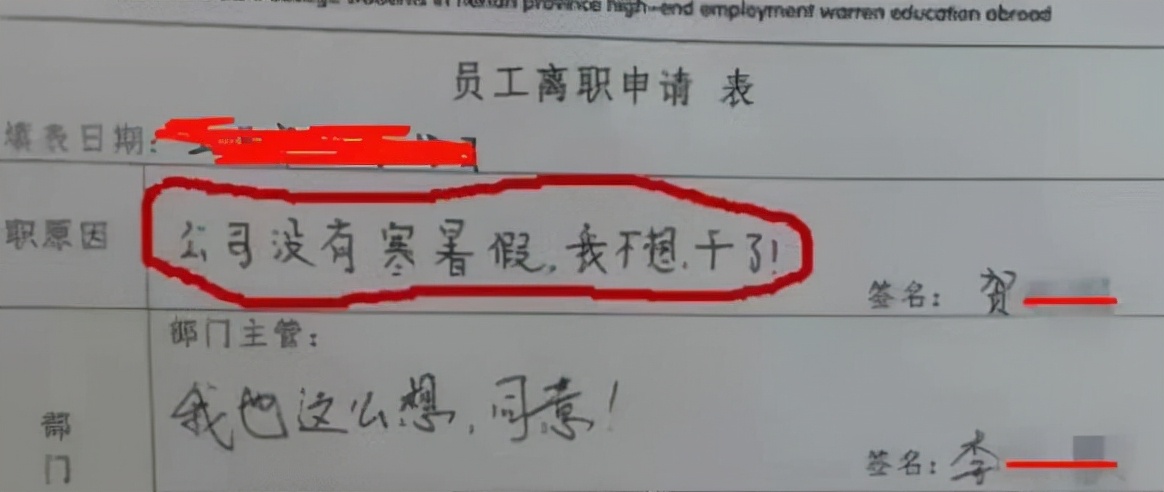 province high-end employment warren education abroad
员工离职申请 表
填表日期:
职原因
公司没有寒暑假,我不想干了!
签名: 贺
部门主管:
我也这么想,同意!
部门
签名: 李